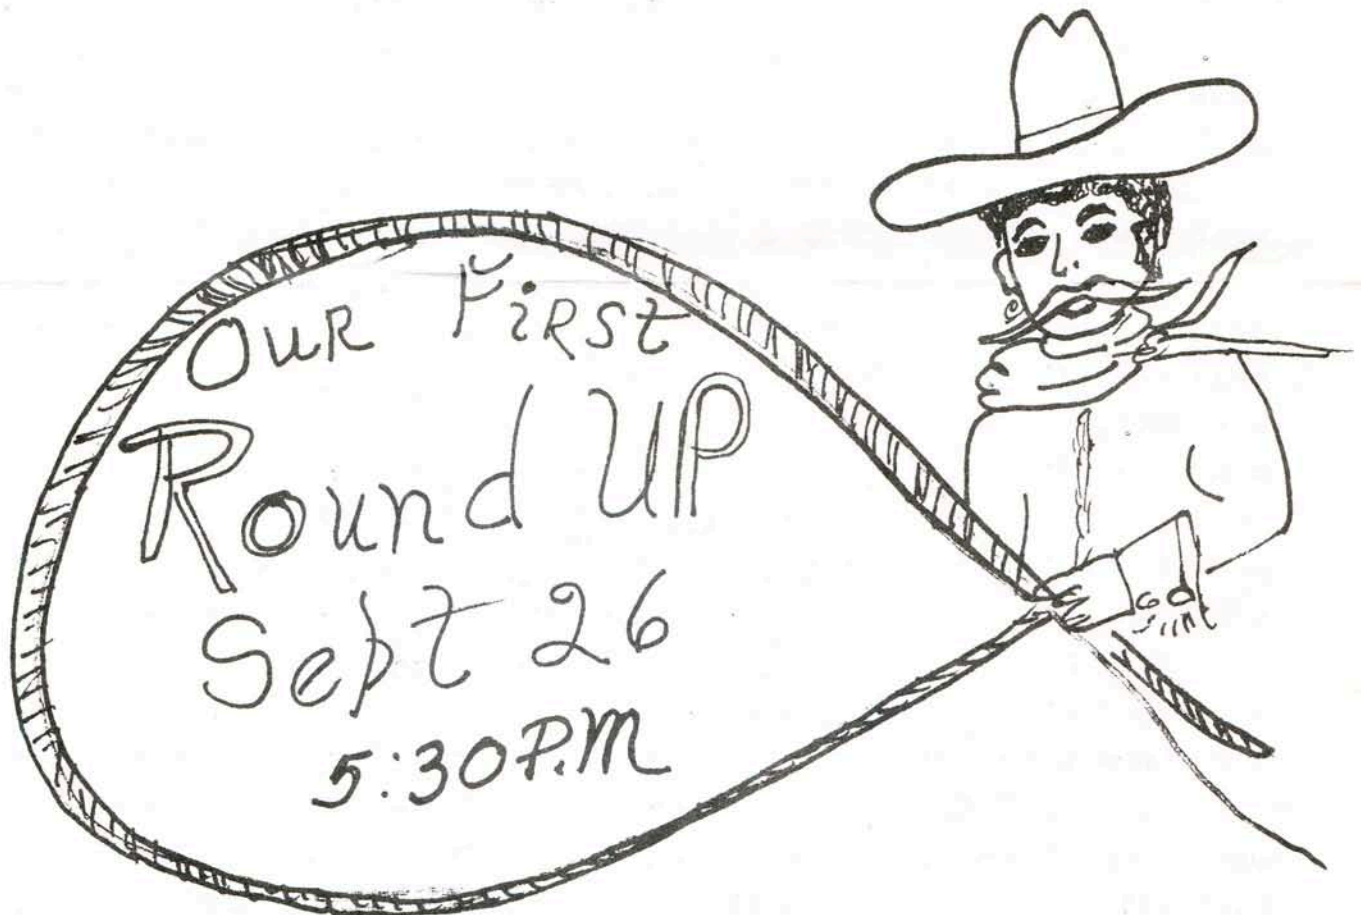 Our First
Round UP
Sept 26
5:30 P.M